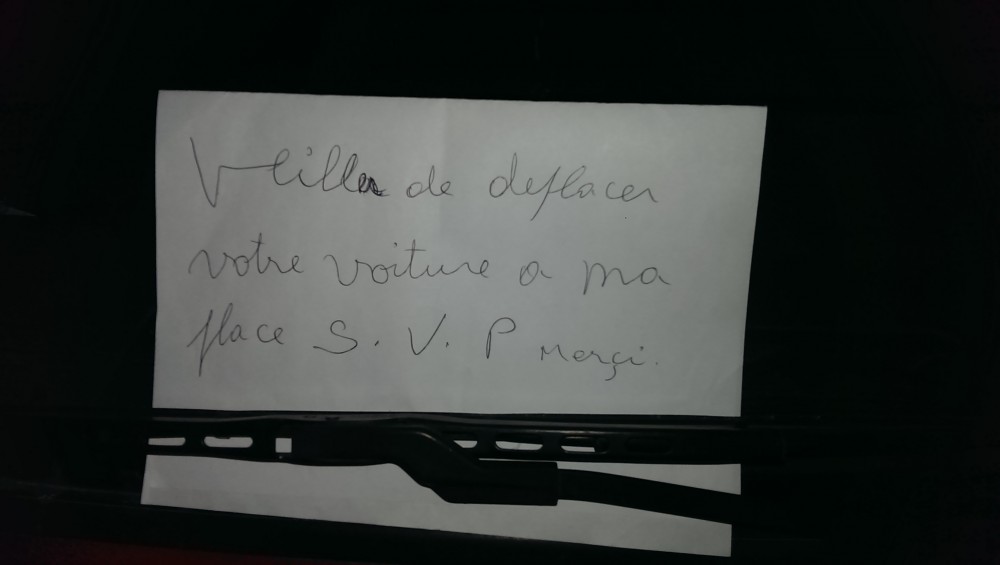 Veiller de deplacer
votre voiture a ma
place S. V. P merçi.